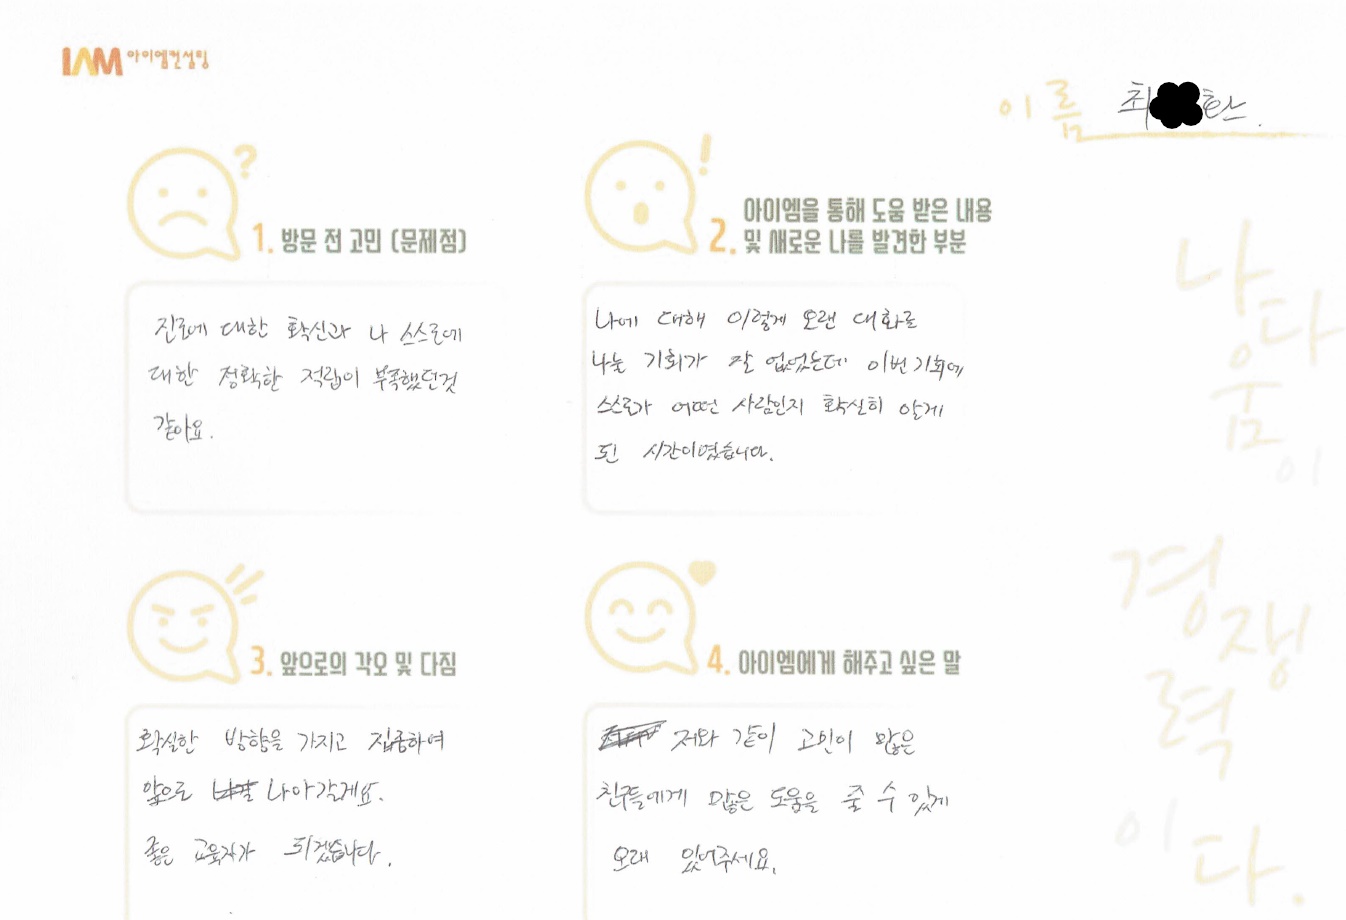 IAM 아이엠컨설팅
이름 최 한.
1. 방문 전 고민 (문제점)
진로에 대한 확신과 나 스스로에
대한 정확한 적립이 부족했던것
같아요.
2. 아이엠을 통해 도움 받은 내용
및 새로운 나를 발견한 부분
나에 대해 이렇게 오랜 대화로
나눌 기회가 잘 없었는데 이번 기회에
스스로가 어떤 사람인지 확실히 알게
된 시간이였습니다.
3. 앞으로의 각오 및 다짐
확실한 방향을 가지고 집중하여
앞으로 나아갈게요.
좋은 교육자가 되겠습니다.
4. 아이엠에게 해주고 싶은 말
저와 같이 고민이 많은
친구들에게 많은 도움을 줄 수 있게
오래 있어주세요.
나다
움이
경쟁
력
이다.